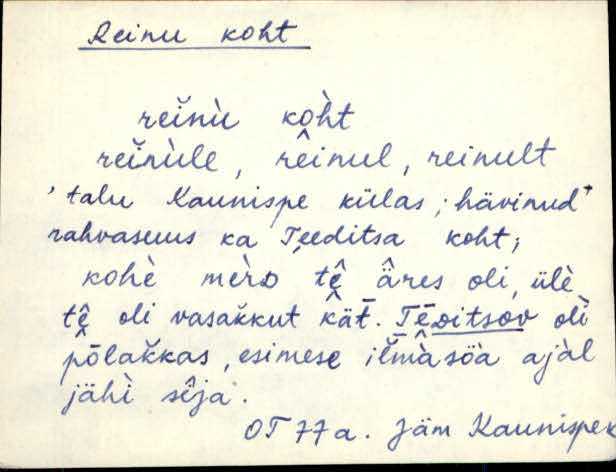 Reinu koht
reĭnù kòht
reĭnùle, rêinul, reinult
'talu Kaunispe külas; hävinud'
rahvasuus ka Teeditsa koht;
kohè mèro tê̬ âres oli, ülè
tê̬ oli vasak̆kut kät̄. Tēditsov olì
pō̭lak̆kas, esimese ìl̆màsöà ajàl
jähì sê̬ja.
OT 77a. Jäm Kaunispe